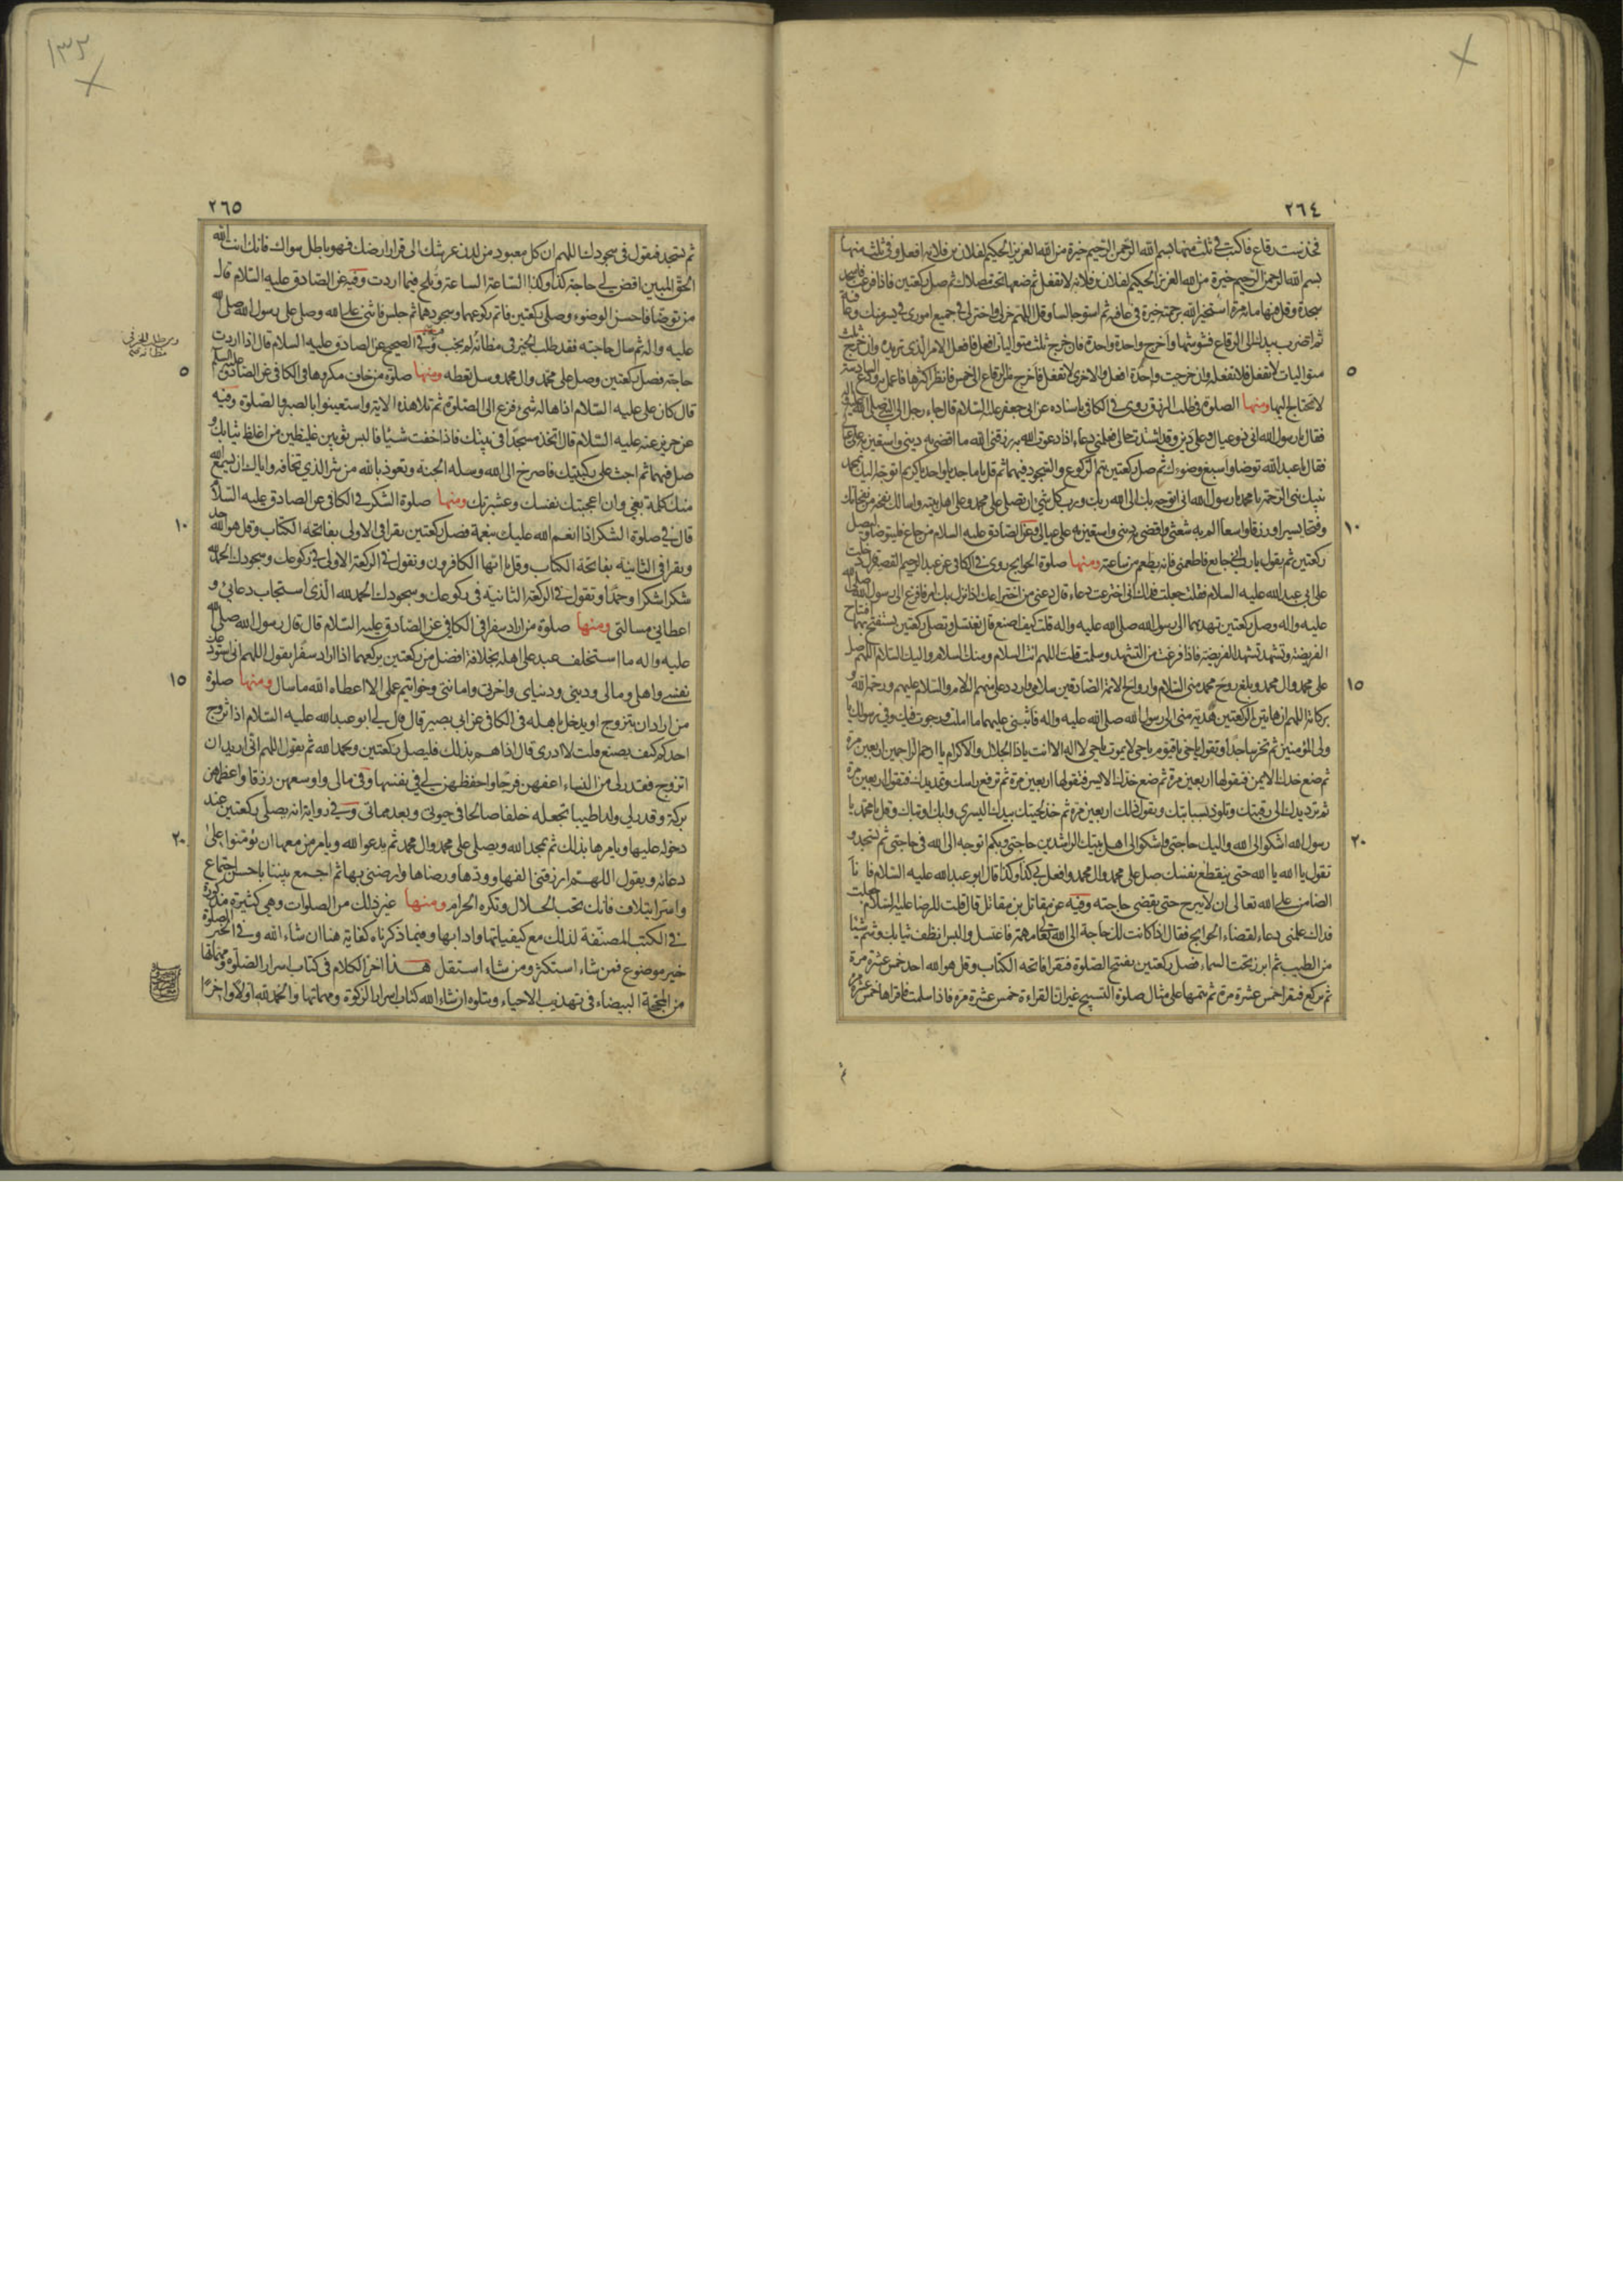 ٢٦٤
فخذ ست رقاع فاكتب في ثلث منها بسم الله الرحمن الرحيم خيرة من الله العزيز الحكيم لفلان بن فلانه افعل وفي ثلث منها
بسم الله الرحمن الرحيم خيرة من الله العزيز الحكيم لفلان بن فلانه لا تفعل ثم ضعها تحت مصلاك ثم صل ركعتين فاذا فرغت فاسجد
سجدة وقل فيها مائة مرة استخير الله برحمته خيرة في عافيه ثم استو جالسا وقل اللهم خر لي واختر لي في جميع اموري في يسر منك وعافية
ثم اضرب بيدك الى الرقاع فشوشها واخرج واحدة واحدة فان خرج ثلث متواليات افعل فافعل الامر الذي تريده وان خرج ثلث
متواليات لا تفعل فلا تفعله وان خرجت واحدة افعل والاخرى لا تفعل فاخرج من الرقاع الى خمس فانظر اكثرها فاعمل به ودع السادسة
٥
لا تحتاج اليها ومنها الصلوة في طلب الرزق روى في الكافي باسناده عن ابي جعفر عليه السلام قال جاء رجل الى النبي صلى الله عليه واله
فقال يا رسول الله اني ذو عيال وعلي دين وقد اشتدت حالي فعلمني دعاء اذا دعوت الله به رزقني الله ما اقضي به ديني واستعين به على عيالي
فقال يا عبد الله توضا واسبغ وضوءك ثم صل ركعتين تتم الركوع والسجود فيهما ثم قل يا ماجد يا واحد يا كريم اتوجه اليك بمحمد
نبيك نبي الرحمة يا محمد يا رسول الله اني اتوجه بك الى الله ربك ورب كل شئ ان تصلي على محمد وعلى اهل بيته واسالك نفحة من نفحاتك
وفتحا يسيرا ورزقا واسعا الم به شعثي واقضي به ديني واستعين به على عيالي وفيه عن الصادق عليه السلام من جاع فليتوضا وليصل
١٠
ركعتين ثم يقول يا رب اني جايع فاطعمني فانه يطعم من ساعته ومنها صلوة الحوايج روى في الكافي عن عبد الرحيم القصير قال دخلت
على ابي عبد الله عليه السلام فقلت جعلت فداك اني اخترعت دعاء قال دعني من اختراعك اذا نزل بك امر فافزع الى رسول الله صلى الله
عليه واله وصل ركعتين تهديهما الى رسول الله صلى الله عليه واله قلت كيف اصنع قال تغتسل وتصلي ركعتين تستفتح بهما افتتاح
الفريضة وتشهد تشهد الفريضة فاذا فرغت من التشهد وسلمت قلت اللهم انت السلام ومنك السلام واليك السلام اللهم صل
على محمد وال محمد وبلغ روح محمد مني السلام وارواح الائمة الصادقين سلامي واردد علي منهم السلام والسلام عليهم ورحمة الله و
١٥
بركاته اللهم ان هاتين الركعتين هدية مني الى رسول الله صلى الله عليه واله فاثبني عليهما ما املت ورجوت فيك وفي رسولك يا
ولي المؤمنين ثم تخر ساجدا وتقول يا حي يا قيوم يا حي لا يموت يا حي لا اله الا انت يا ذا الجلال والاكرام يا ارحم الراحمين اربعين مرة
ثم ضع خدك الايمن فتقولها اربعين مرة ثم ضع خدك الايسر فتقولها اربعين مرة ثم ترفع راسك وتمد يدك فتقول اربعين مرة
ثم ترد يدك الى رقبتك وتلوذ بسبابتك وتقول ذلك اربعين مرة ثم خذ لحيتك بيدك اليسرى وابك او تباك وقل يا محمد يا
رسول الله اشكو الى الله واليك حاجتي واشكو الى اهل بيتك الراشدين حاجتي وبكم اتوجه الى الله في حاجتي ثم تسجد و
٢٠
تقول يا الله يا الله حتى ينقطع نفسك صل على محمد وال محمد وافعل بي كذا وكذا قال ابو عبد الله عليه السلام فانا
الضامن على الله تعالى ان لا يبرح حتى يقضى حاجته وفيه عن مقاتل بن مقاتل قال قلت للرضا عليه السلام جعلت
فداك علمني دعاء لقضاء الحوايج فقال اذا كانت لك حاجة الى الله تعالى مهمة فاغتسل والبس انظف ثيابك وشم شيئا
من الطيب ثم ابرز تحت السماء فصل ركعتين تفتتح الصلوة فتقرا فاتحة الكتاب وقل هو الله احد خمس عشرة مرة
ثم تركع فتقرا خمس عشرة مرة ثم تتمها على مثال صلوة التسبيح غير ان القراءة خمس عشرة مرة فاذا سلمت فاقراها خمس عشرة مرة
ثم
١٣٢
٢٦٥
ثم تسجد فتقول في سجودك اللهم ان كل معبود من لدن عرشك الى قرار ارضك فهو باطل سواك فانك انت الله
الحق المبين اقض لي حاجة كذا وكذا الساعة الساعة وتلح فيما اردت وفيه عن الصادق عليه السلام قال
من توضا فاحسن الوضوء وصلى ركعتين فاتم ركوعهما وسجودهما ثم جلس فاثنى على الله وصلى على رسول الله صلى الله
عليه واله ثم سال حاجته فقد طلب الخير في مظانه لم يخب وفي الصحيح عن الصادق عليه السلام قال اذا اردت
حاجة فصل ركعتين وصل على محمد وال محمد وسل تعطه ومنها صلوة من خاف مكروها في الكافي عن الصادق عليه السلم
٥
قال كان علي عليه السلام اذا هاله شئ فزع الى الصلوة ثم تلا هذه الاية واستعينوا بالصبر والصلوة وفيه
عن حريز عنه عليه السلام قال اتخذ مسجدا في بيتك فاذا خفت شيئا فالبس ثوبين غليظين من اغلظ ثيابك و
صل فيهما ثم اجث على ركبتيك فاصرخ الى الله وسله الجنة وتعوذ بالله من شر الذي تخافه واياك ان يسمع الله
منك كلمة بغي وان اعجبتك نفسك وعشيرتك ومنها صلوة الشكر في الكافي عن الصادق عليه السلام
قال في صلوة الشكر اذا انعم الله عليك بنعمة فصل ركعتين تقرا في الاولى بفاتحة الكتاب وقل هو الله احد
١٠
وتقرا في الثانية بفاتحة الكتاب وقل يا ايها الكافرون وتقول في الركعة الاولى في ركوعك وسجودك الحمد لله
شكرا شكرا وحمدا وتقول في الركعة الثانية في ركوعك وسجودك الحمد لله الذي استجاب دعائي و
اعطاني مسالتي ومنها صلوة من اراد سفرا في الكافي عن الصادق عليه السلام قال قال رسول الله صلى الله
عليه واله ما استخلف عبد على اهله بخلافة افضل من ركعتين يركعهما اذا اراد سفرا يقول اللهم اني استودعك
نفسي واهلي ومالي وديني ودنياي واخرتي وامانتي وخواتيم عملي الا اعطاه الله ما سال ومنها صلوة
١٥
من اراد ان يتزوج او يدخل باهله في الكافي عن ابي بصير قال قال لي ابو عبد الله عليه السلام اذا تزوج
احدكم كيف يصنع قلت لا ادري قال اذا هم بذلك فليصل ركعتين ويحمد الله ثم يقول اللهم اني اريد ان
اتزوج فقدر لي من النساء اعفهن فرجا واحفظهن لي في نفسها وفي مالي واوسعهن رزقا واعظمهن
بركة وقدر لي ولدا طيبا تجعله خلفا صالحا في حيوتي وبعد مماتي وفي رواية انه يصلي ركعتين عند
دخوله عليها ويامرها بذلك ثم يمجد الله ويصلي على محمد وال محمد ثم يدعو الله ويامر من معها ان يؤمنوا على
٢٠
دعائه ويقول اللهم ارزقني الفها وودها ورضاها وارضني بها ثم اجمع بيننا باحسن اجتماع
واسر ايتلاف فانك تحب الحلال وتكره الحرام ومنها غير ذلك من الصلوات وهي كثيرة مذكورة
في الكتب المصنفة لذلك مع كيفياتها وادابها وفيما ذكرناه كفاية هنا ان شاء الله وفي الخبر الصلوة
خير موضوع فمن شاء استكثر ومن شاء استقل هذا اخر الكلام في كتاب اسرار الصلوة ومهماتها
من المحجة البيضاء في تهذيب الاحياء ويتلوه ان شاء الله كتاب اسرار الزكوة ومهماتها والحمد لله اولا واخرا